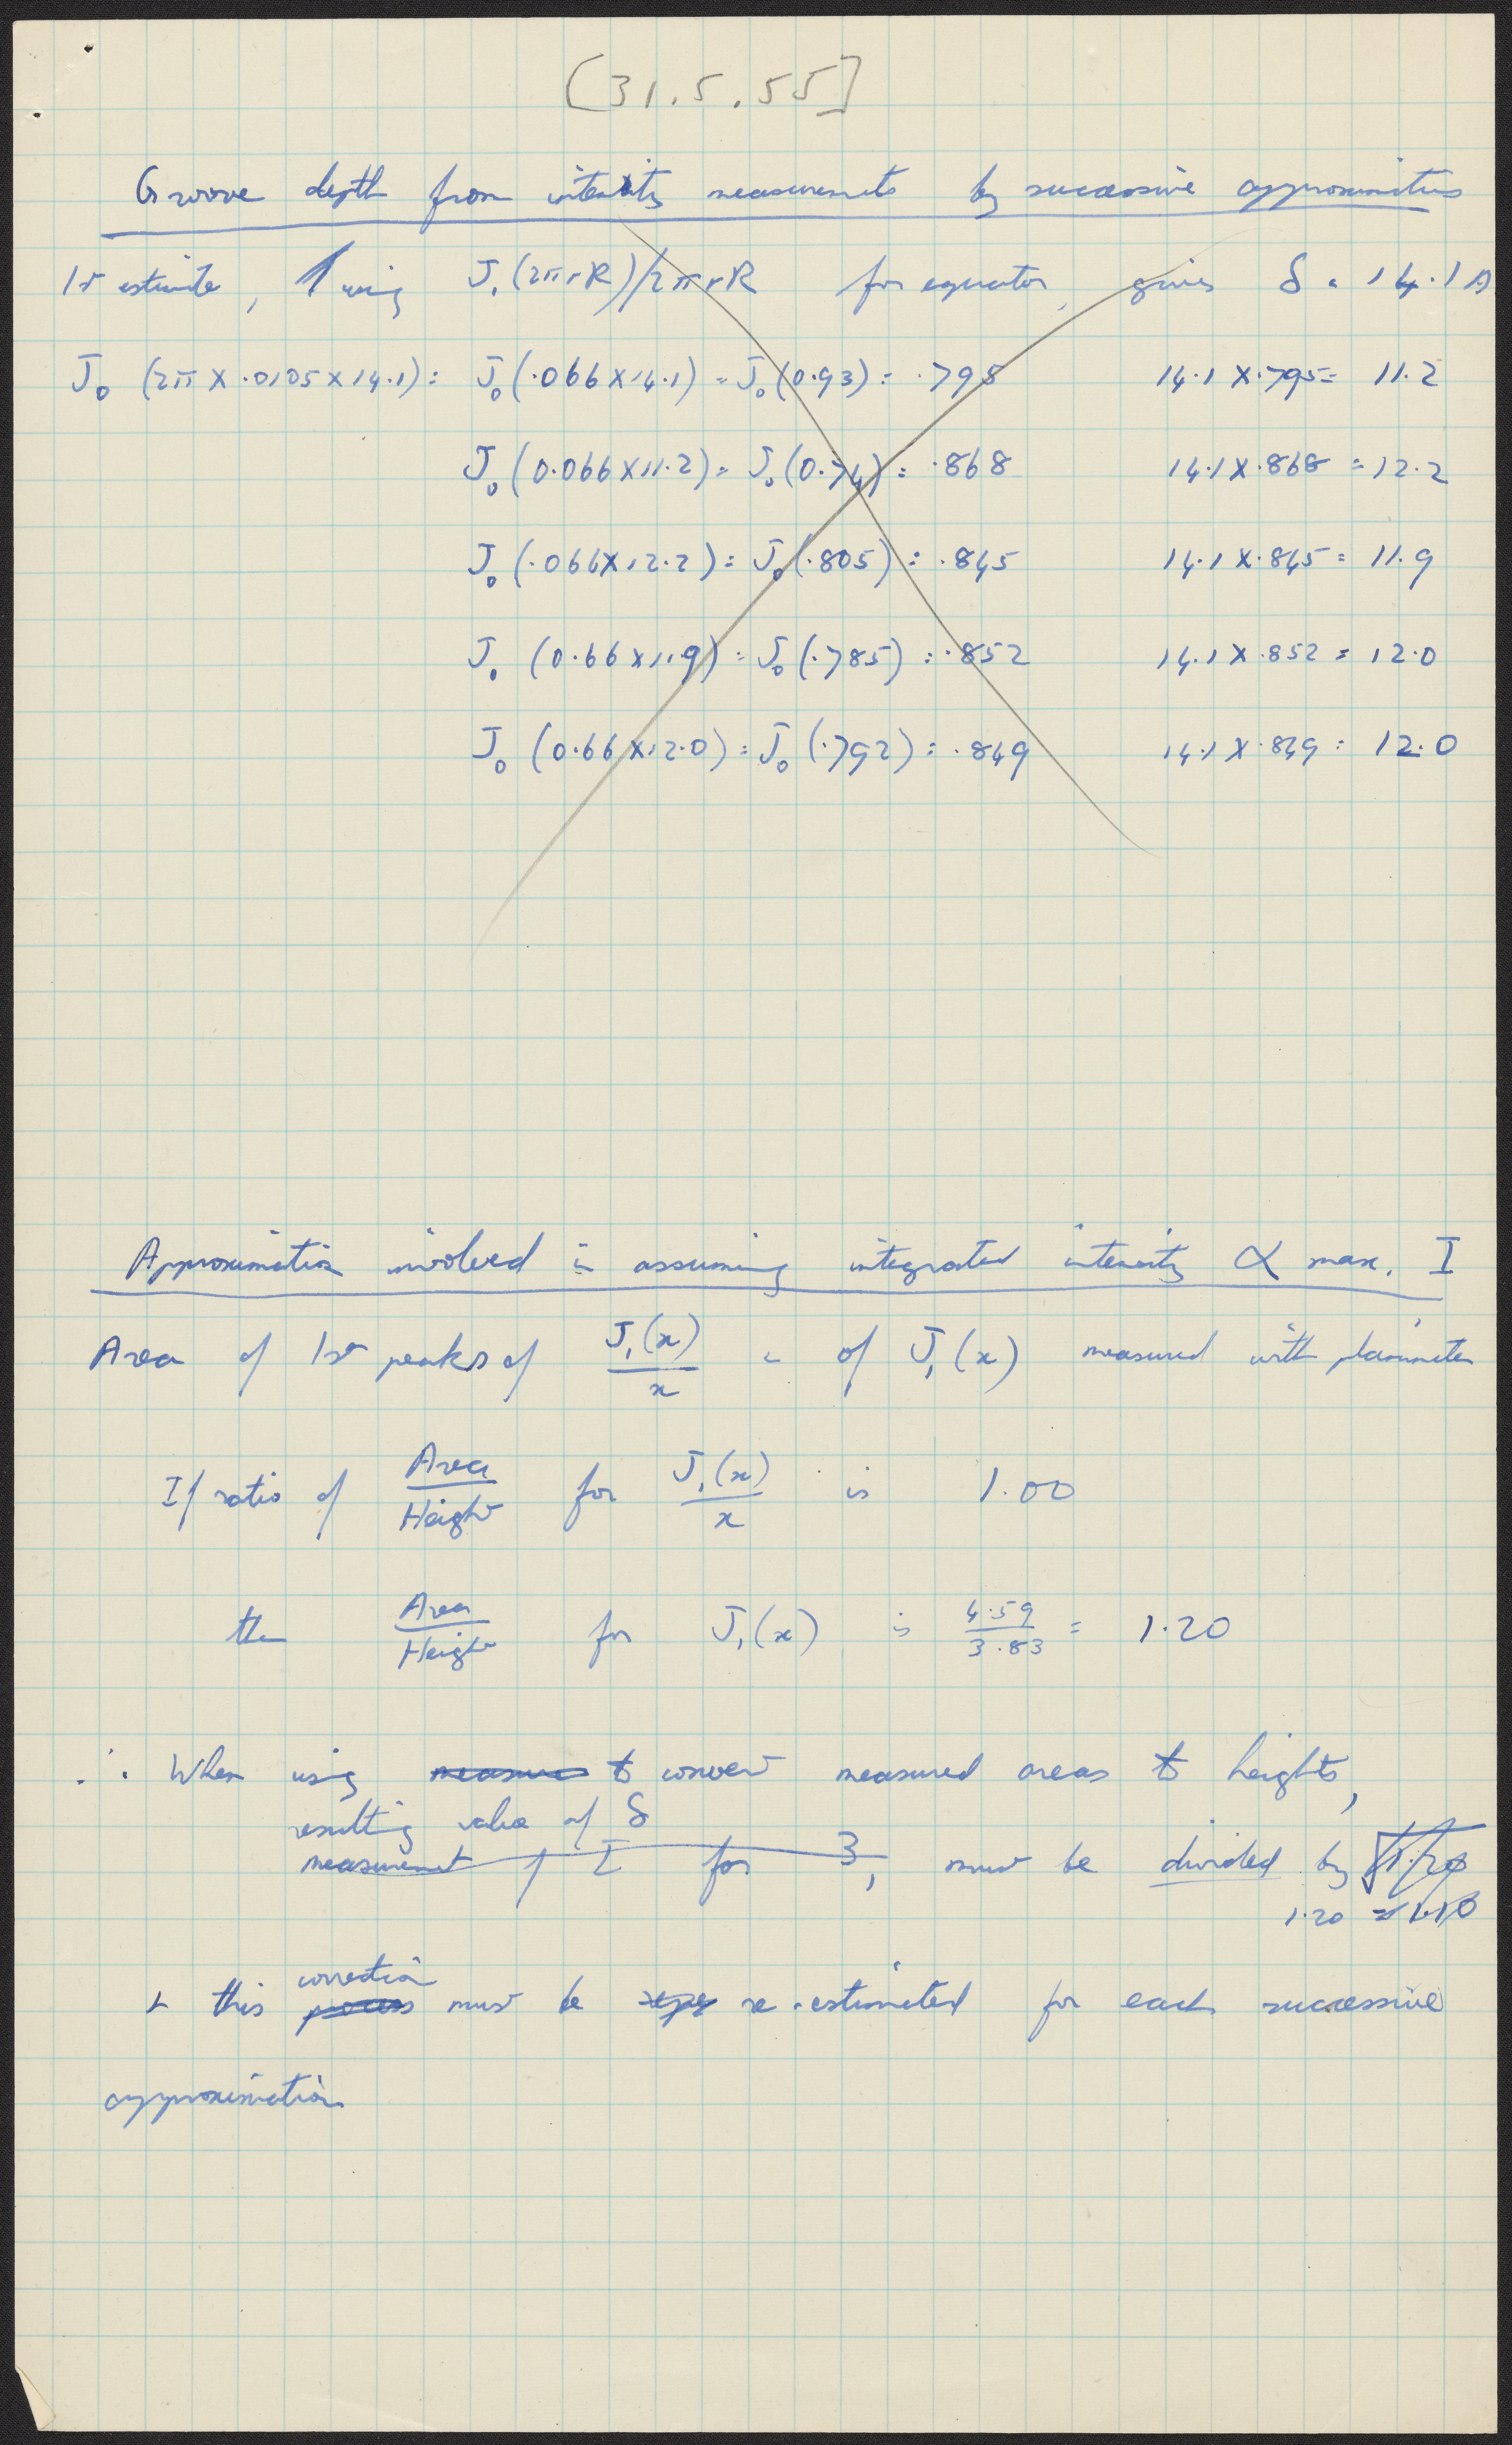 [31.5.55]
Groove depth from intensity measurements by successive approximations
1st estimate, using J₁(2πrR)/2πrR for equator, gives δ = 14.1 A
J₀ (2π × .0105 × 14.1) = J₀(.066 × 14.1) = J₀(0.93) = .795 14.1 × .795 = 11.2
J₀(0.066 × 11.2) = J₀(0.74) = .868 14.1 × .868 = 12.2
J₀(.066 × 12.2) = J₀(.805) = .845 14.1 × .845 = 11.9
J₀ (0.66 × 11.9) = J₀(.785) = .852 14.1 × .852 = 12.0
J₀ (0.66 × 12.0) = J₀(.792) = .849 14.1 × .849 = 12.0
Approximation involved in assuming integrated intensity ∝ max. I
Area of 1st peaks of J₁(x)/x & of J₁(x) measured with planimeter
If ratio of Area/Height for J₁(x)/x is 1.00
then Area/Height for J₁(x) is 4.59/3.83 = 1.20
∴ When using measures to convert measured areas to heights,
resulting value of δ
measurement of I for 3, must be divided by √1.20
1.20 = 1.10
& this correction
process must be re-estimated for each successive
approximation